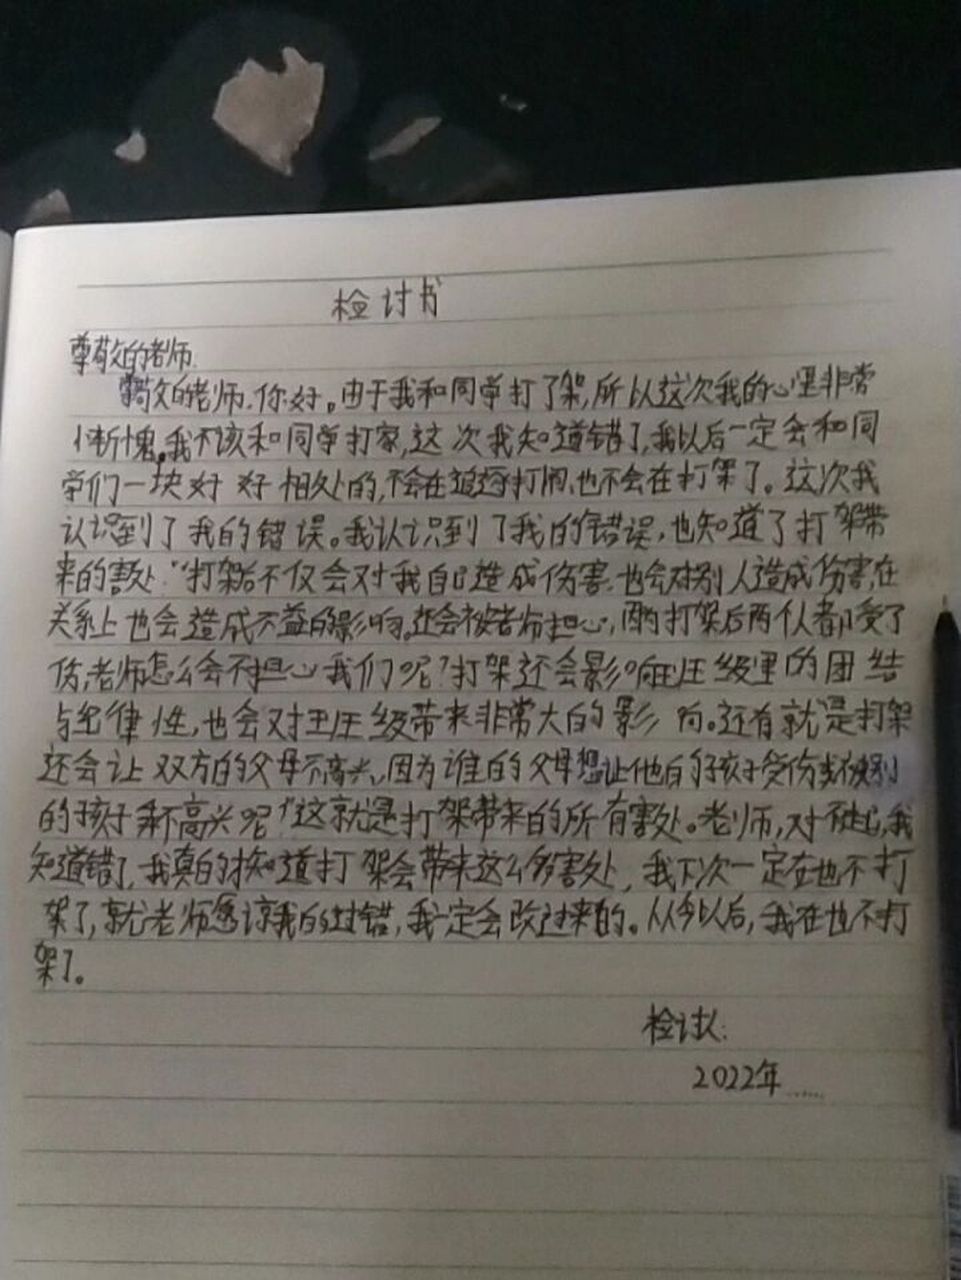 检讨书
尊敬的老师
尊敬的老师.你好。由于我和同学打了架,所以这次我的心里非常
惭愧。我不该和同学打家,这次我知道错了,我以后一定会和同
学们一块好好相处的,不会在追逐打闹,也不会在打架了。这次我
认识到了我的错误。我认识到了我的错误,也知道了打架带
来的害处."打架后不仅会对我自己造成伤害.也会对别人造成伤害,在
关系上也会造成不益的影响.还会被老师担心,打架后两个人都受了
伤,老师怎么会不担心我们呢?打架还会影响班级里的团结
与纪律性,也会对班级带来非常大的影向。还有就是打架
还会让双方的父母不高兴,因为谁的父母想让他自的孩子受伤别
的孩子不高兴呢?"这就是打架带来的所有害处。老师,对不起,我
知道错了,我真的才知道打架会带来这么多害处,我下次一定在也不打
架了,就老师愿谅我的过错,我一定会改过来的。从今以后,我在也不打
架了。
检讨人:
2022年......